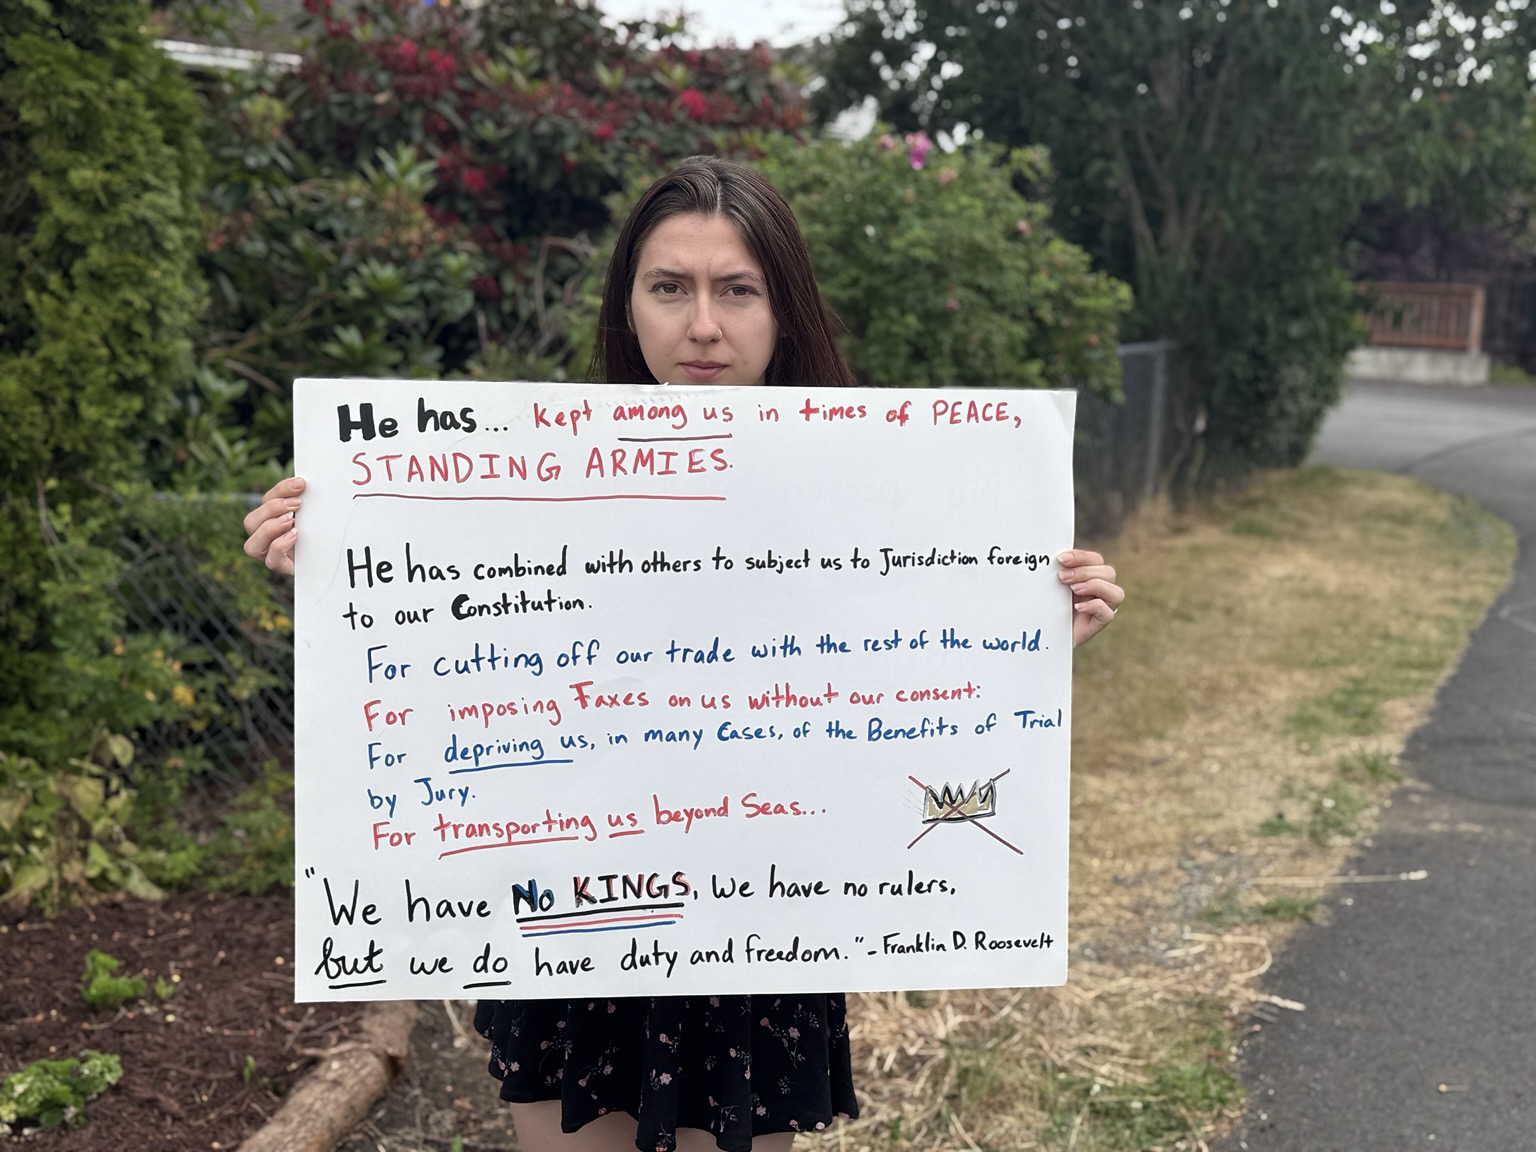 He has... kept among us in times of PEACE,
STANDING ARMIES.
He has combined with others to subject us to Jurisdiction foreign
to our Constitution.
For cutting off our trade with the rest of the world.
For imposing Taxes on us without our consent:
For depriving us, in many Cases, of the Benefits of Trial
by Jury.
For transporting us beyond Seas...
"We have No KINGS, We have no rulers,
but we do have duty and freedom." - Franklin D. Roosevelt